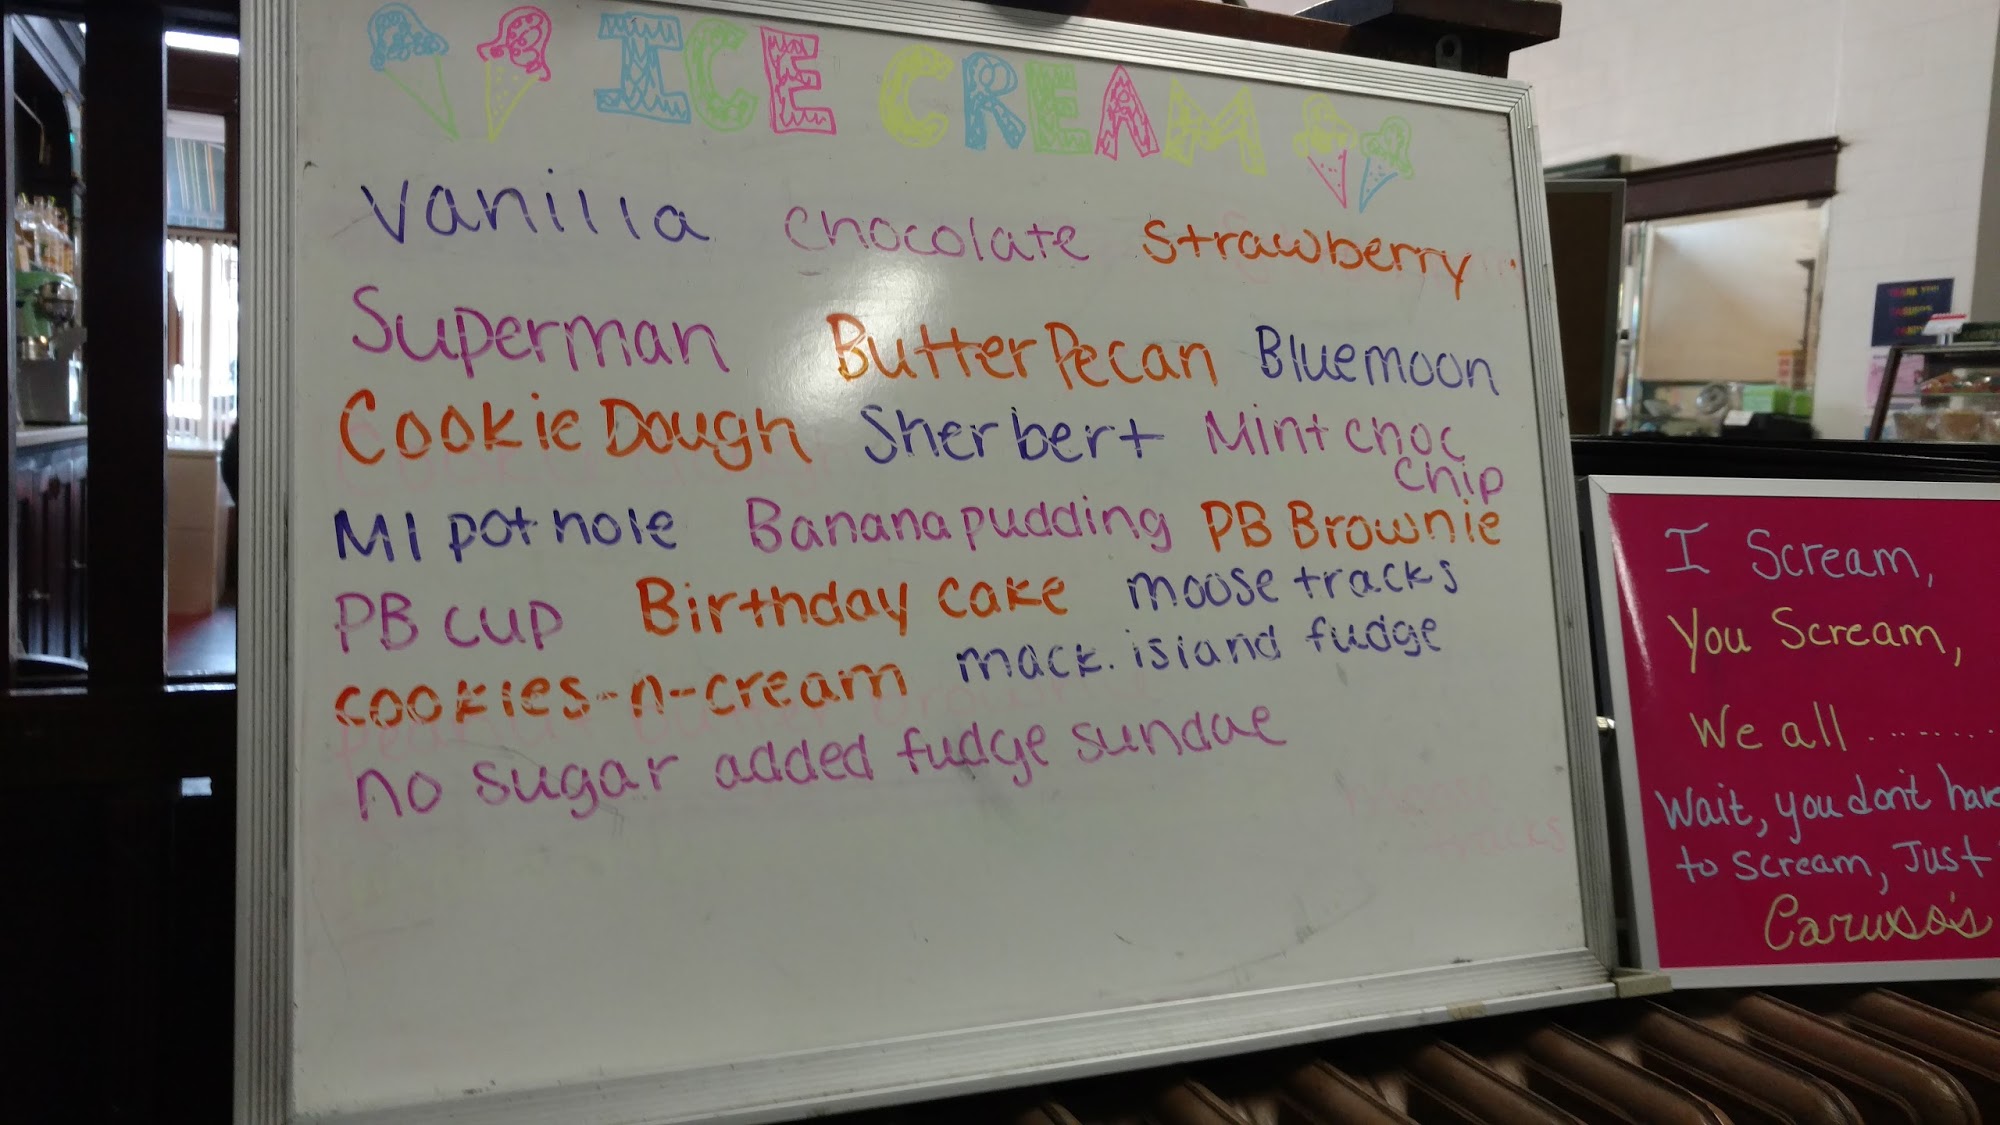 ICE CREAM
Vanilla chocolate strawberry
Superman Butter Pecan Bluemoon
Cookie Dough Sherbert Mint choc
chip
MI pothole Banana pudding PB Brownie
PB cup Birthday cake moose tracks
cookies-n-cream mack. island fudge
no sugar added fudge sundae
I Scream,
You Scream,
We all ........
Wait, you don't have
to scream, Just
Caruso's